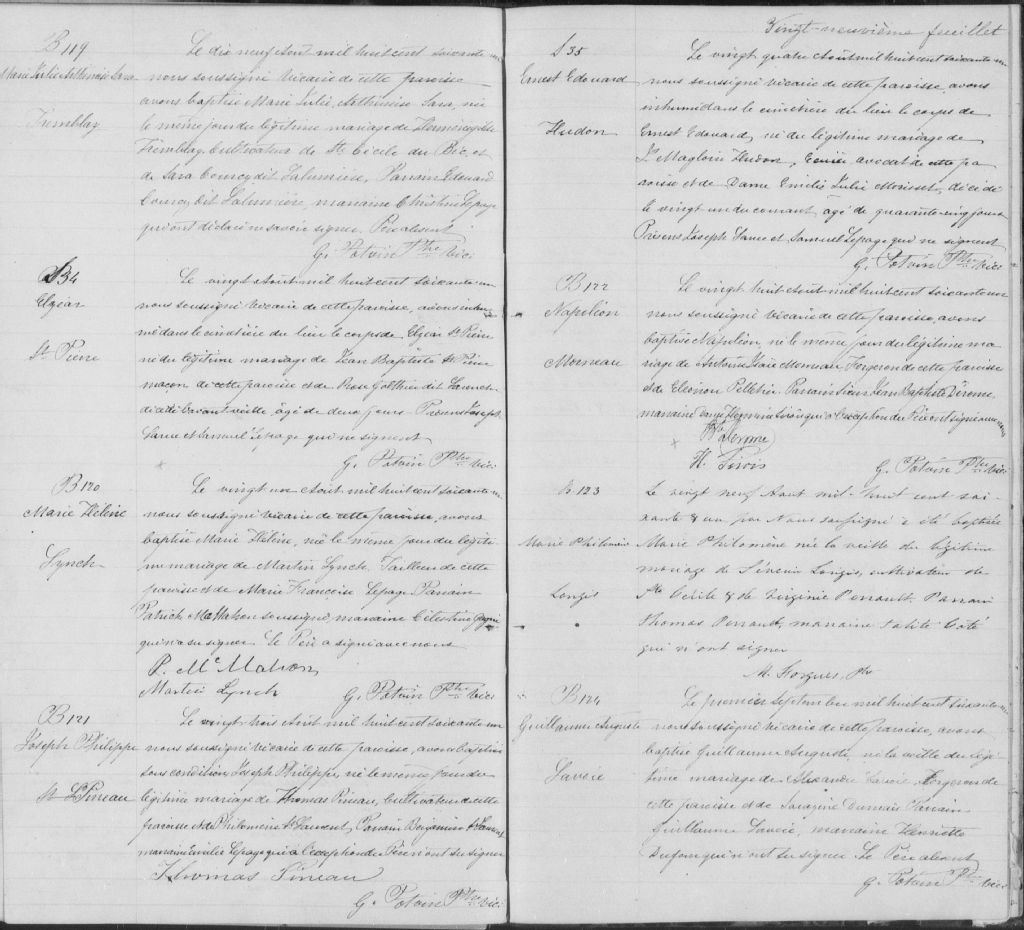 B 119
Marie Julie Arthémise Sara
Tremblay
Le dix neuf Aout mil huit cent soixante un
nous soussigné vicaire de cette paroisse
avons baptisé Marie Julie, Arthémise Sara, née
le même jour du légitime mariage de Herménégilde
Tremblay Cultivateur de Ste Cécile du Bic, et
de Sara Courcy dit Lalumière, Parrain Edouard
Courcy dit Lalumière, marraine Christine Lepage
qui ont déclaré ne savoir signer. Père absent
G. Potvin Ptre Vic:
S 34
Elzéar
St Pierre
Le vingt Aout mil huit cent soixante un
nous soussigné vicaire de cette paroisse, avons inhu
mé dans le cimetière du lieu le corps de Elzéar St Pierre
né du légitime mariage de Jean Baptiste St Pierre
maçon de cette paroisse et de Rose
décédé l'avant veille âgé de deux jours. Présens Joseph
Laure et Samuel Lepage qui ne signent
G. Potvin Ptre Vic:
B 120
Marie Hélène
Lynch
Le vingt un Aout mil huit cent soixante un
nous soussigné vicaire de cette paroisse, avons
baptisé Marie Hélène, née le même jour du légiti
me mariage de Martin Lynch, Tailleur de cette
paroisse et de Marie Françoise Lepage Parrain
Patrick McMahon soussigné, marraine Célestine
qui n'a su signer. Le Père a signé avec nous
P. McMahon
Martin Lynch G. Potvin Ptre Vic:
B 121
Joseph Philippe
St L Pineau
Le vingt trois Aout mil huit cent soixante un
nous soussigné vicaire de cette paroisse, avons baptisé
sous condition Joseph Philippe, né le même jour du
légitime mariage de Thomas Pineau, Cultivateur de cette
paroisse et de Philomène St Laurent, Parrain Benjamin St Laurent
marraine Emilie Lepage qui à l'exception du Père n'ont su signer
Thomas Pineau
G. Potvin Ptre Vic:
Vingt-neuvième feuillet
S 35
Ernest Edouard
Hudon
Le vingt quatre Aout mil huit cent soixante un
nous soussigné vicaire de cette paroisse, avons
inhumé dans le cimetière du lieu le corps de
Ernest Edouard, né du légitime mariage de
Ls Magloire Hudon, Ecuier, avocat de cette pa
roisse et de Dame Emilie Julie Morisset, décédé
le vingt un du courant, âgé de quarante cinq jours
Présens Joseph Laure et Samuel Lepage qui ne signent
G. Potvin Ptre Vic:
B 122
Napoléon
Morneau
Le vingt huit Aout mil huit cent soixante un
nous soussigné vicaire de cette paroisse, avons
baptisé Napoléon, né le même jour du légitime ma
riage de Antoine Isaïe Morneau, Forgeron de cette paroisse
et de Eléonore Pelletier. Parrain Sieur Jean Baptiste Derome,
marraine Dame Sirois qui à l'exception du Père ont signé avec nous
Derome
H. Sirois G. Potvin Ptre Vic:
B. 123
Marie Philomène
Longis
Le vingt neuf Aout mil-huit cent soi-
xante & un par Nous soussigné a été baptisée
Marie Philomène née la veille du légitime
mariage de Séverin Longis, cultivateur de
Ste Cécile & de Virginie Perrault. Parrain
Thomas Perrault, marraine Côté
qui n'ont signer
M. Forgues, Ptre
B 124
Guillaume Auguste
Savoie
Le premier Septembre mil huit cent soixante un
nous soussigné vicaire de cette paroisse, avons
baptisé Guillaume Auguste, né la veille du légi
time mariage de Alexandre Savoie Forgeron de
cette paroisse et de Dumais Parrain
Guillaume Savoie, marraine Henriette
Dufour qui n'ont su signer Le Père absent
G. Potvin Ptre Vic: